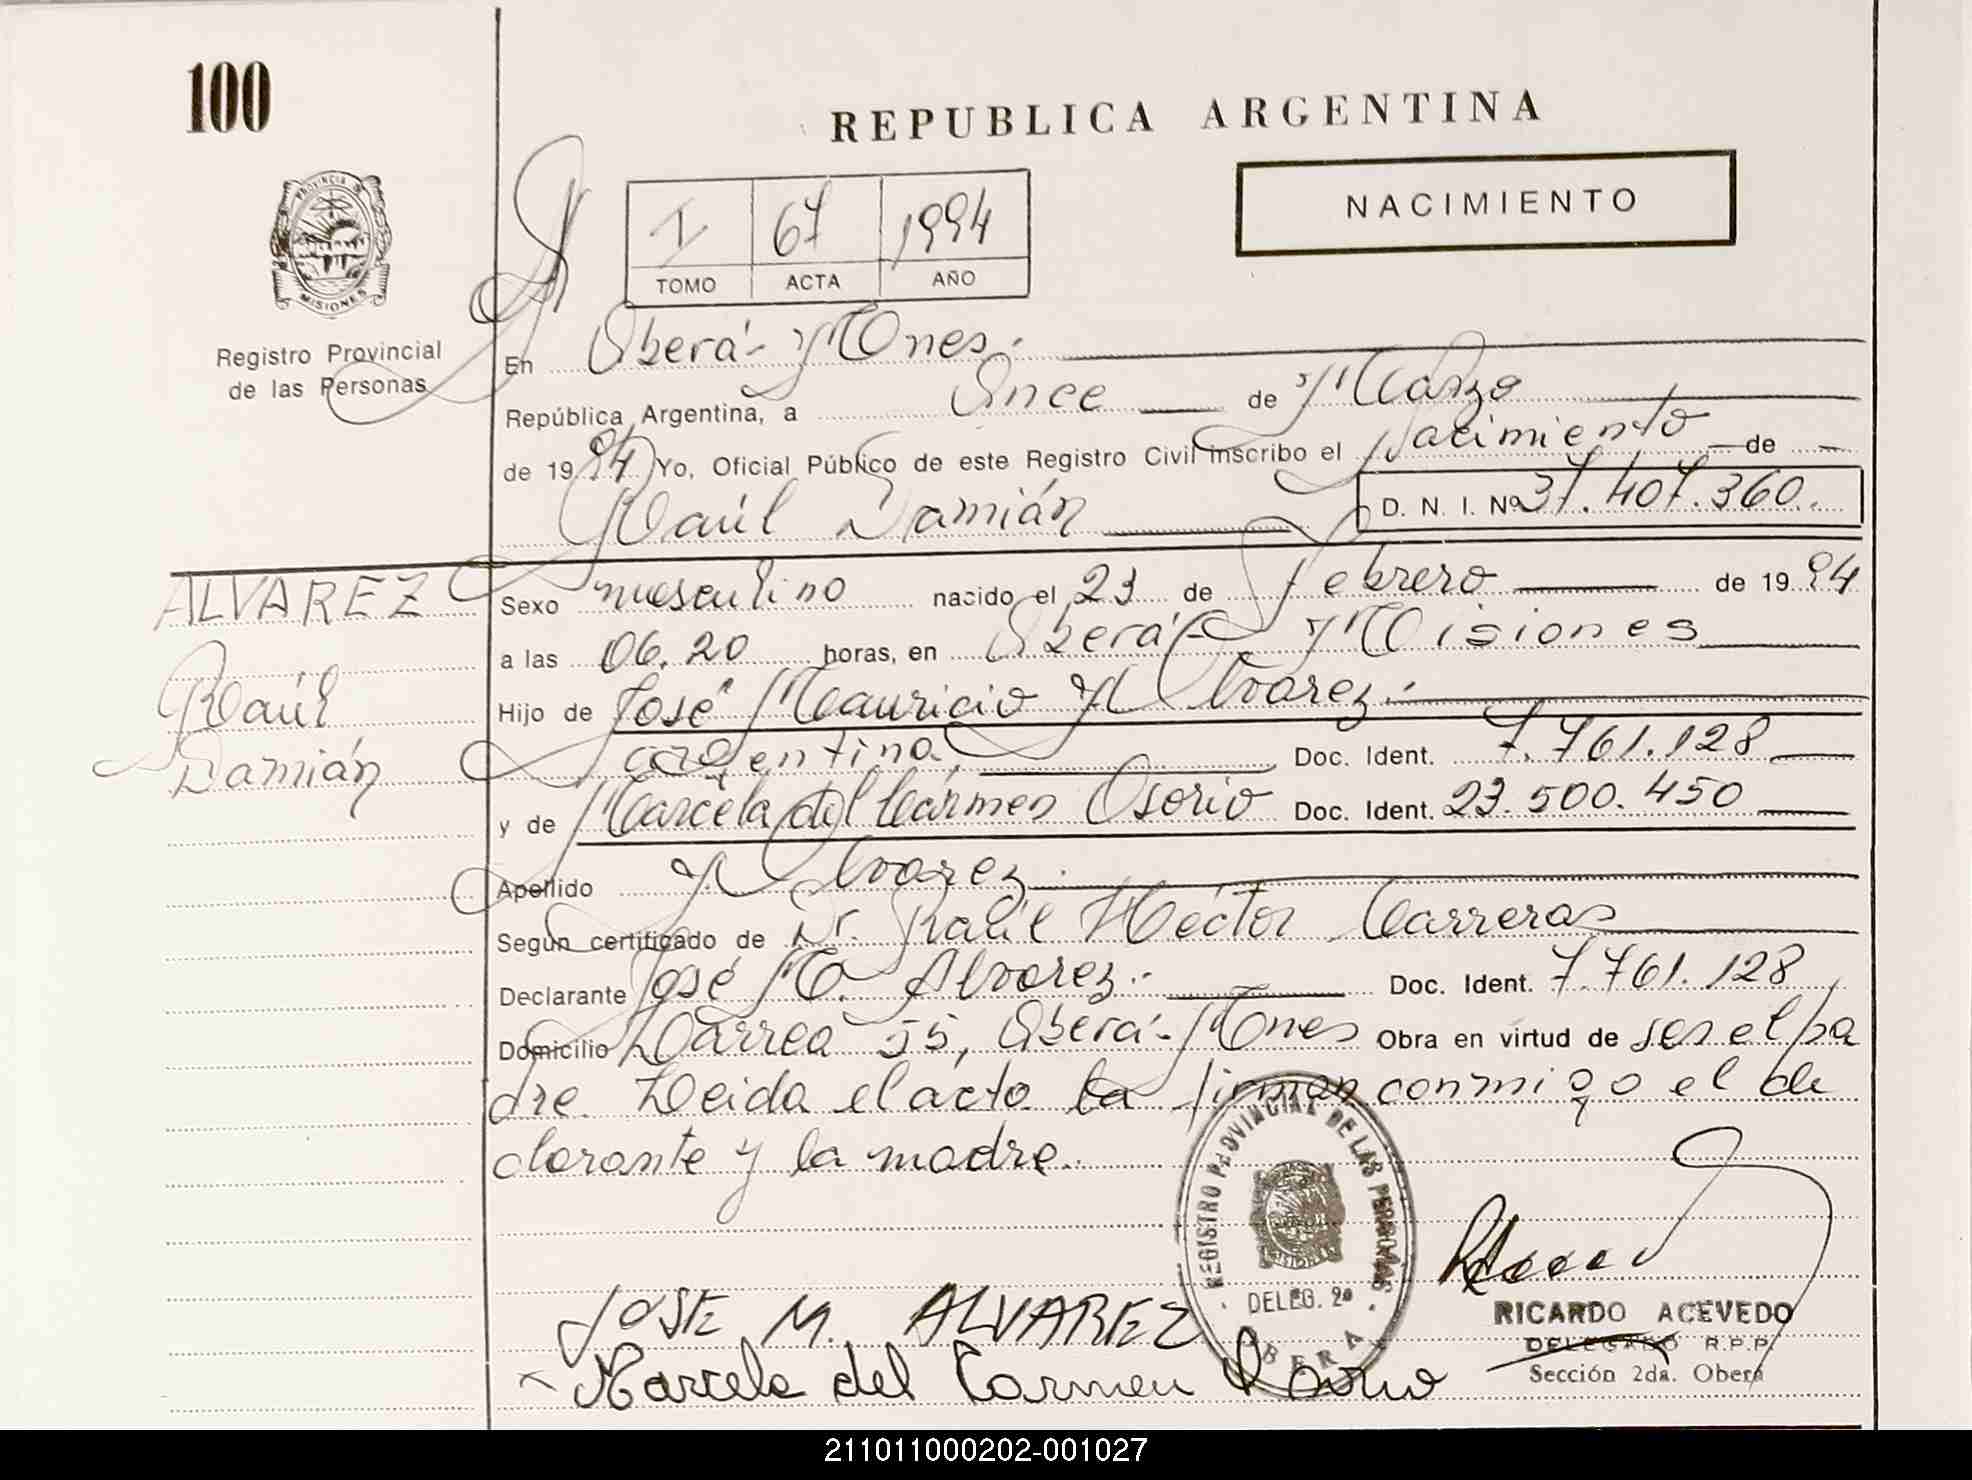 100
REPUBLICA ARGENTINA
PROVINCIA DE MISIONES
Registro Provincial
de las Personas
I 67 1994
TOMO ACTA AÑO
NACIMIENTO
En Oberá - Mnes.
República Argentina, a Once de Marzo
de 1994 Yo, Oficial Público de este Registro Civil inscribo el Nacimiento de
Raúl Damián D. N. I. Nº 37.407.360.
ALVAREZ
Raúl
Damián
Sexo masculino nacido el 23 de Febrero de 1994
a las 06.20 horas, en Oberá - Misiones
Hijo de José Mauricio Alvarez.
argentino. Doc. Ident. 7.761.128
y de Marcela del Cármen Osorio Doc. Ident. 23.500.450
Apellido Alvarez.
Según certificado de Dr. Raúl Héctor Carreras
Declarante José M. Alvarez. Doc. Ident. 7.761.128
Domicilio Larrea 55, Oberá - Mnes Obra en virtud de ser el pa
dre. Leida el acta la firman conmigo el de
clarante y la madre.
REGISTRO PROVINCIAL DE LAS PERSONAS
MISIONES
DELEG. 2ª
OBERA
JOSE M. ALVAREZ
Marcela del Carmen Osorio
RICARDO ACEVEDO
DELEGADO R.P.P.
Sección 2da. Oberá
211011000202-001027